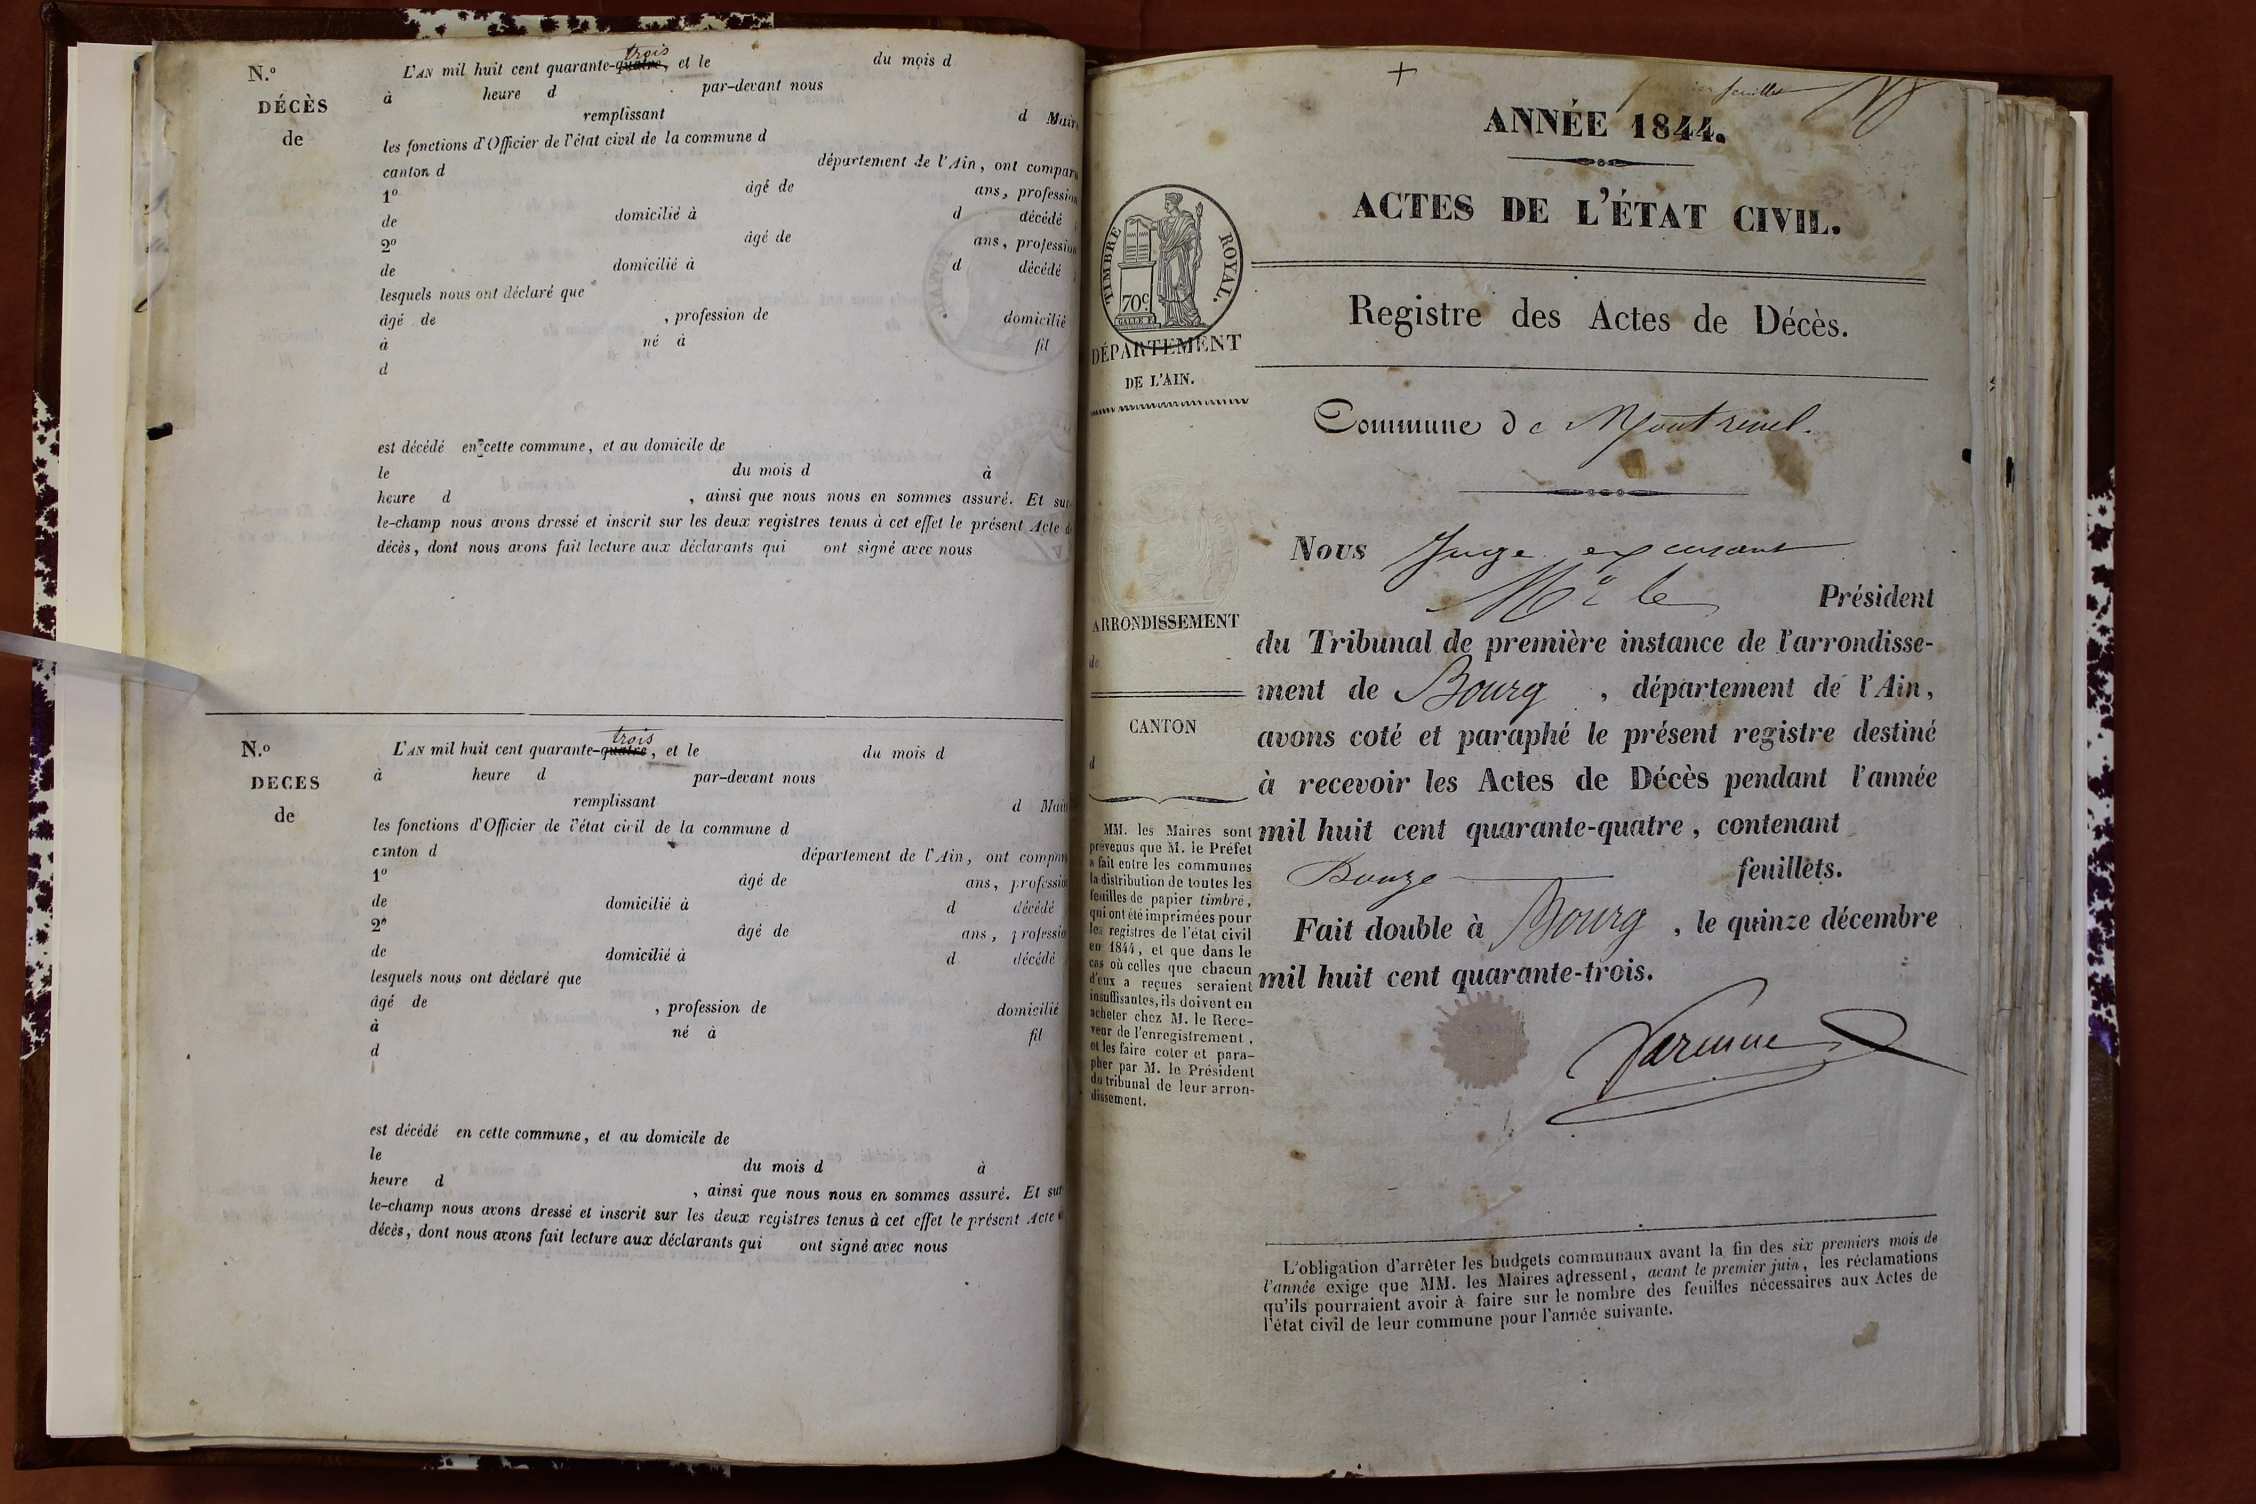 N.º
DÉCÈS
de
L'AN mil huit cent quarante-quatre, et le du mois d
trois
à heure d par-devant nous
remplissant d Mair
les fonctions d'Officier de l'état civil de la commune d
canton d département de l'Ain, ont comparu
1º âgé de ans, profession
de domicilié à d décédé
2º âgé de ans, profession
de domicilié à d décédé
lesquels nous ont déclaré que
âgé de , profession de domicilié
à né à fil
d
est décédé en cette commune, et au domicile de
le du mois d à
heure d , ainsi que nous nous en sommes assuré. Et sur
le-champ nous avons dressé et inscrit sur les deux registres tenus à cet effet le présent Acte d
décès, dont nous avons fait lecture aux déclarants qui ont signé avec nous
N.º
DECES
de
L'AN mil huit cent quarante-quatre, et le du mois d
trois
à heure d par-devant nous
remplissant d Mair
les fonctions d'Officier de l'état civil de la commune d
canton d département de l'Ain, ont compar
1º âgé de ans, profession
de domicilié à d décédé
2º âgé de ans, professio
de domicilié à d décédé
lesquels nous ont déclaré que
âgé de , profession de domicilié
à né à fil
d
est décédé en cette commune, et au domicile de
le du mois d à
heure d , ainsi que nous nous en sommes assuré. Et sur
le-champ nous avons dressé et inscrit sur les deux registres tenus à cet effet le présent Acte
décès, dont nous avons fait lecture aux déclarants qui ont signé avec nous
feuillet
ANNÉE 1844.
ACTES DE L'ÉTAT CIVIL.
Registre des Actes de Décès.
TIMBRE ROYAL.
70c
DÉPARTEMENT
DE L'AIN.
Commune de Montrevel.
Nous Juge excusant
Mr le Président
du Tribunal de première instance de l'arrondisse-
ment de Bourg , département de l'Ain,
avons coté et paraphé le présent registre destiné
à recevoir les Actes de Décès pendant l'année
mil huit cent quarante-quatre, contenant
feuillets.
Fait double à Bourg , le quinze décembre
mil huit cent quarante-trois.
ARRONDISSEMENT
de
CANTON
d
MM. les Maires sont
prévenus que M. le Préfet
a fait entre les communes
la distribution de toutes les
feuilles de papier timbré,
qui ont été imprimées pour
les registres de l'état civil
en 1844, et que dans le
cas où celles que chacun
d'eux a reçues seraient
insuffisantes, ils doivent en
acheter chez M. le Rece-
veur de l'enregistrement,
et les faire coter et para-
pher par M. le Président
du tribunal de leur arron-
dissement.
L'obligation d'arrêter les budgets communaux avant la fin des six premiers mois de
l'année exige que MM. les Maires adressent, avant le premier juin, les réclamations
qu'ils pourraient avoir à faire sur le nombre des feuilles nécessaires aux Actes de
l'état civil de leur commune pour l'année suivante.